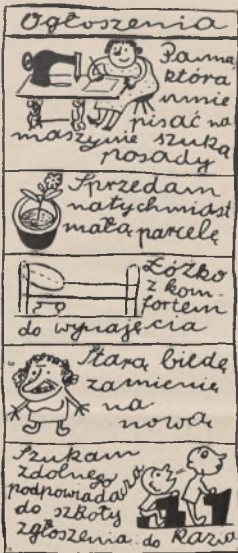 Ogłoszenia
Panna,
która
umie
pisać na
maszynie szuka
posady
Sprzedam
natychmiast
małą parcelę
Łóżko
z kom-
fortem
do wynajęcia
Starą biedę
zamienię
na
nową
Szukam
zdolnego
podpowiadacza
do szkoły
zgłoszenia: do Kazia